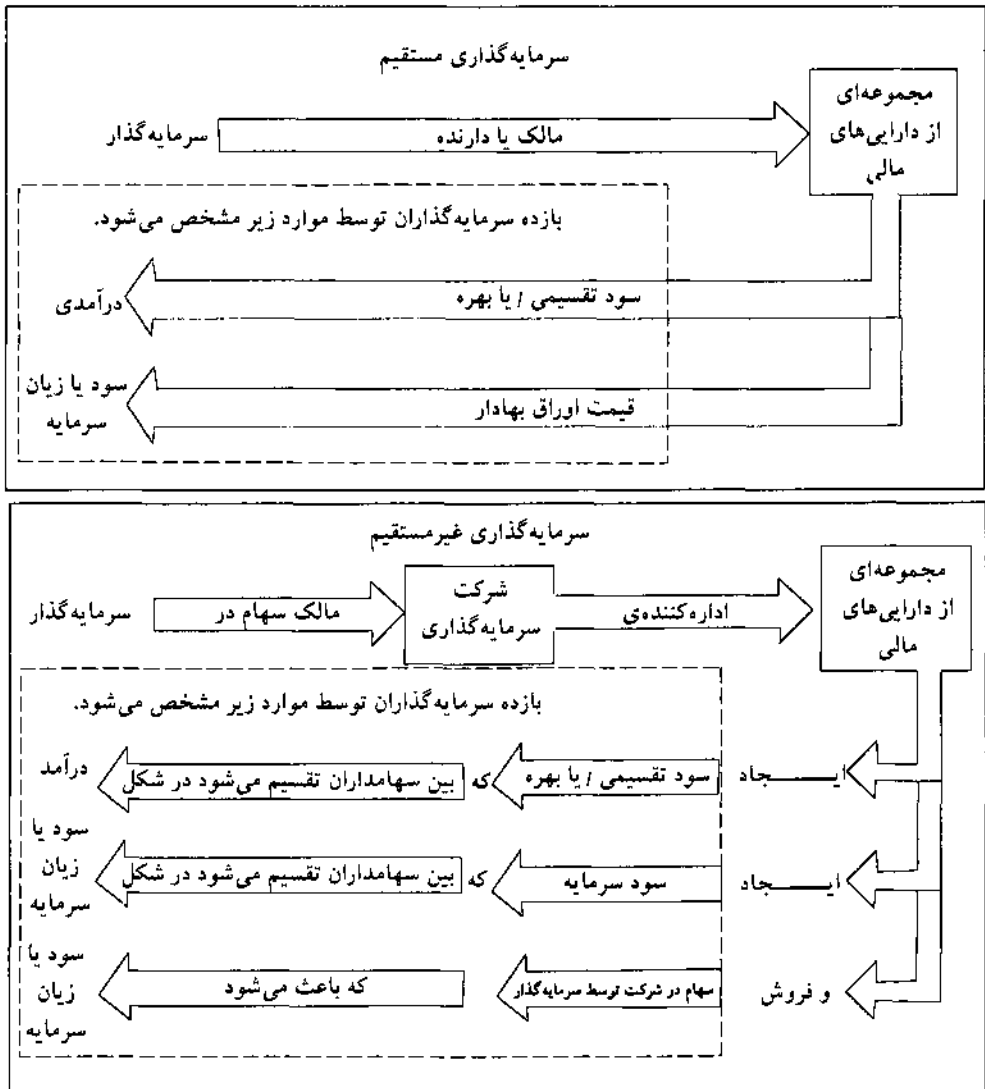 سرمایه‌گذاری مستقیم
مجموعه‌ای
از دارایی‌های
مالی
سرمایه‌گذار
مالک یا دارنده
بازده سرمایه‌گذاران توسط موارد زیر مشخص می‌شود.
سود تقسیمی / یا بهره
درآمدی
قیمت اوراق بهادار
سود یا زیان
سرمایه
سرمایه‌گذاری غیرمستقیم
مجموعه‌ای
از دارایی‌های
مالی
سرمایه‌گذار
مالک سهام در
شرکت
سرمایه‌گذاری
اداره‌کننده‌ی
بازده سرمایه‌گذاران توسط موارد زیر مشخص می‌شود.
ایـــجاد
سود تقسیمی / یا بهره
که
بین سهامداران تقسیم می‌شود در شکل
درآمد
ایـــجاد
سود سرمایه
که
بین سهامداران تقسیم می‌شود در شکل
سود یا
زیان
سرمایه
و فروش
سهام در شرکت توسط سرمایه‌گذار
که باعث می‌شود
سود یا
زیان
سرمایه